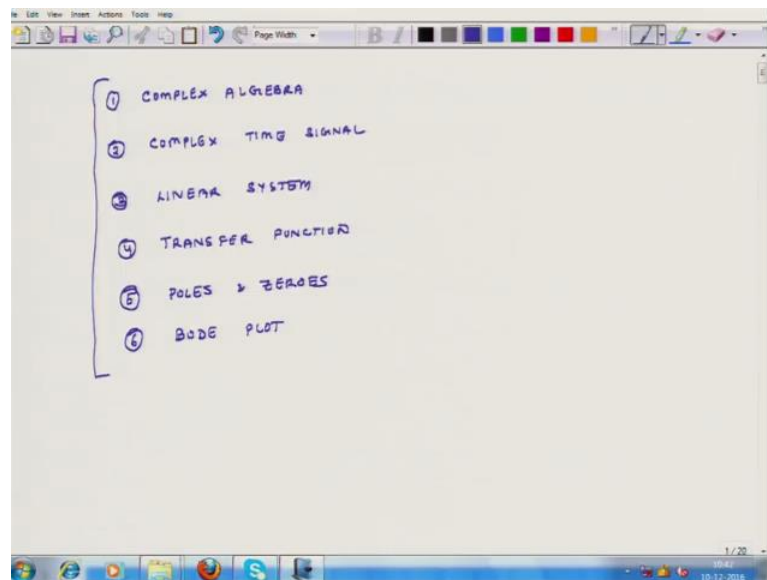 Edit View Insert Actions Tools Help
Page Width
B I
① COMPLEX ALGEBRA
② COMPLEX TIME SIGNAL
③ LINEAR SYSTEM
④ TRANSFER FUNCTION
⑤ POLES & ZEROES
⑥ BODE PLOT
1 / 20
10:42
10-12-2016